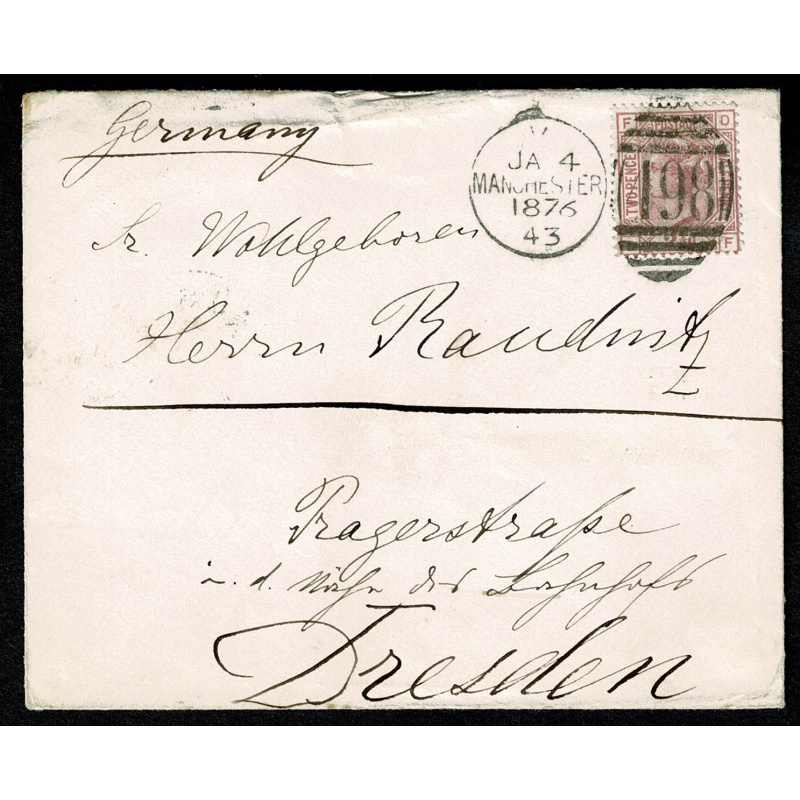 Germany
V
JA 4
MANCHESTER
1876
43
498
F D
TWO PENCE
F
Sr. Wohlgeboren
Herrn Raudnitz
Pragerstraße
i. d. Nähe des Bahnhofs
Dresden